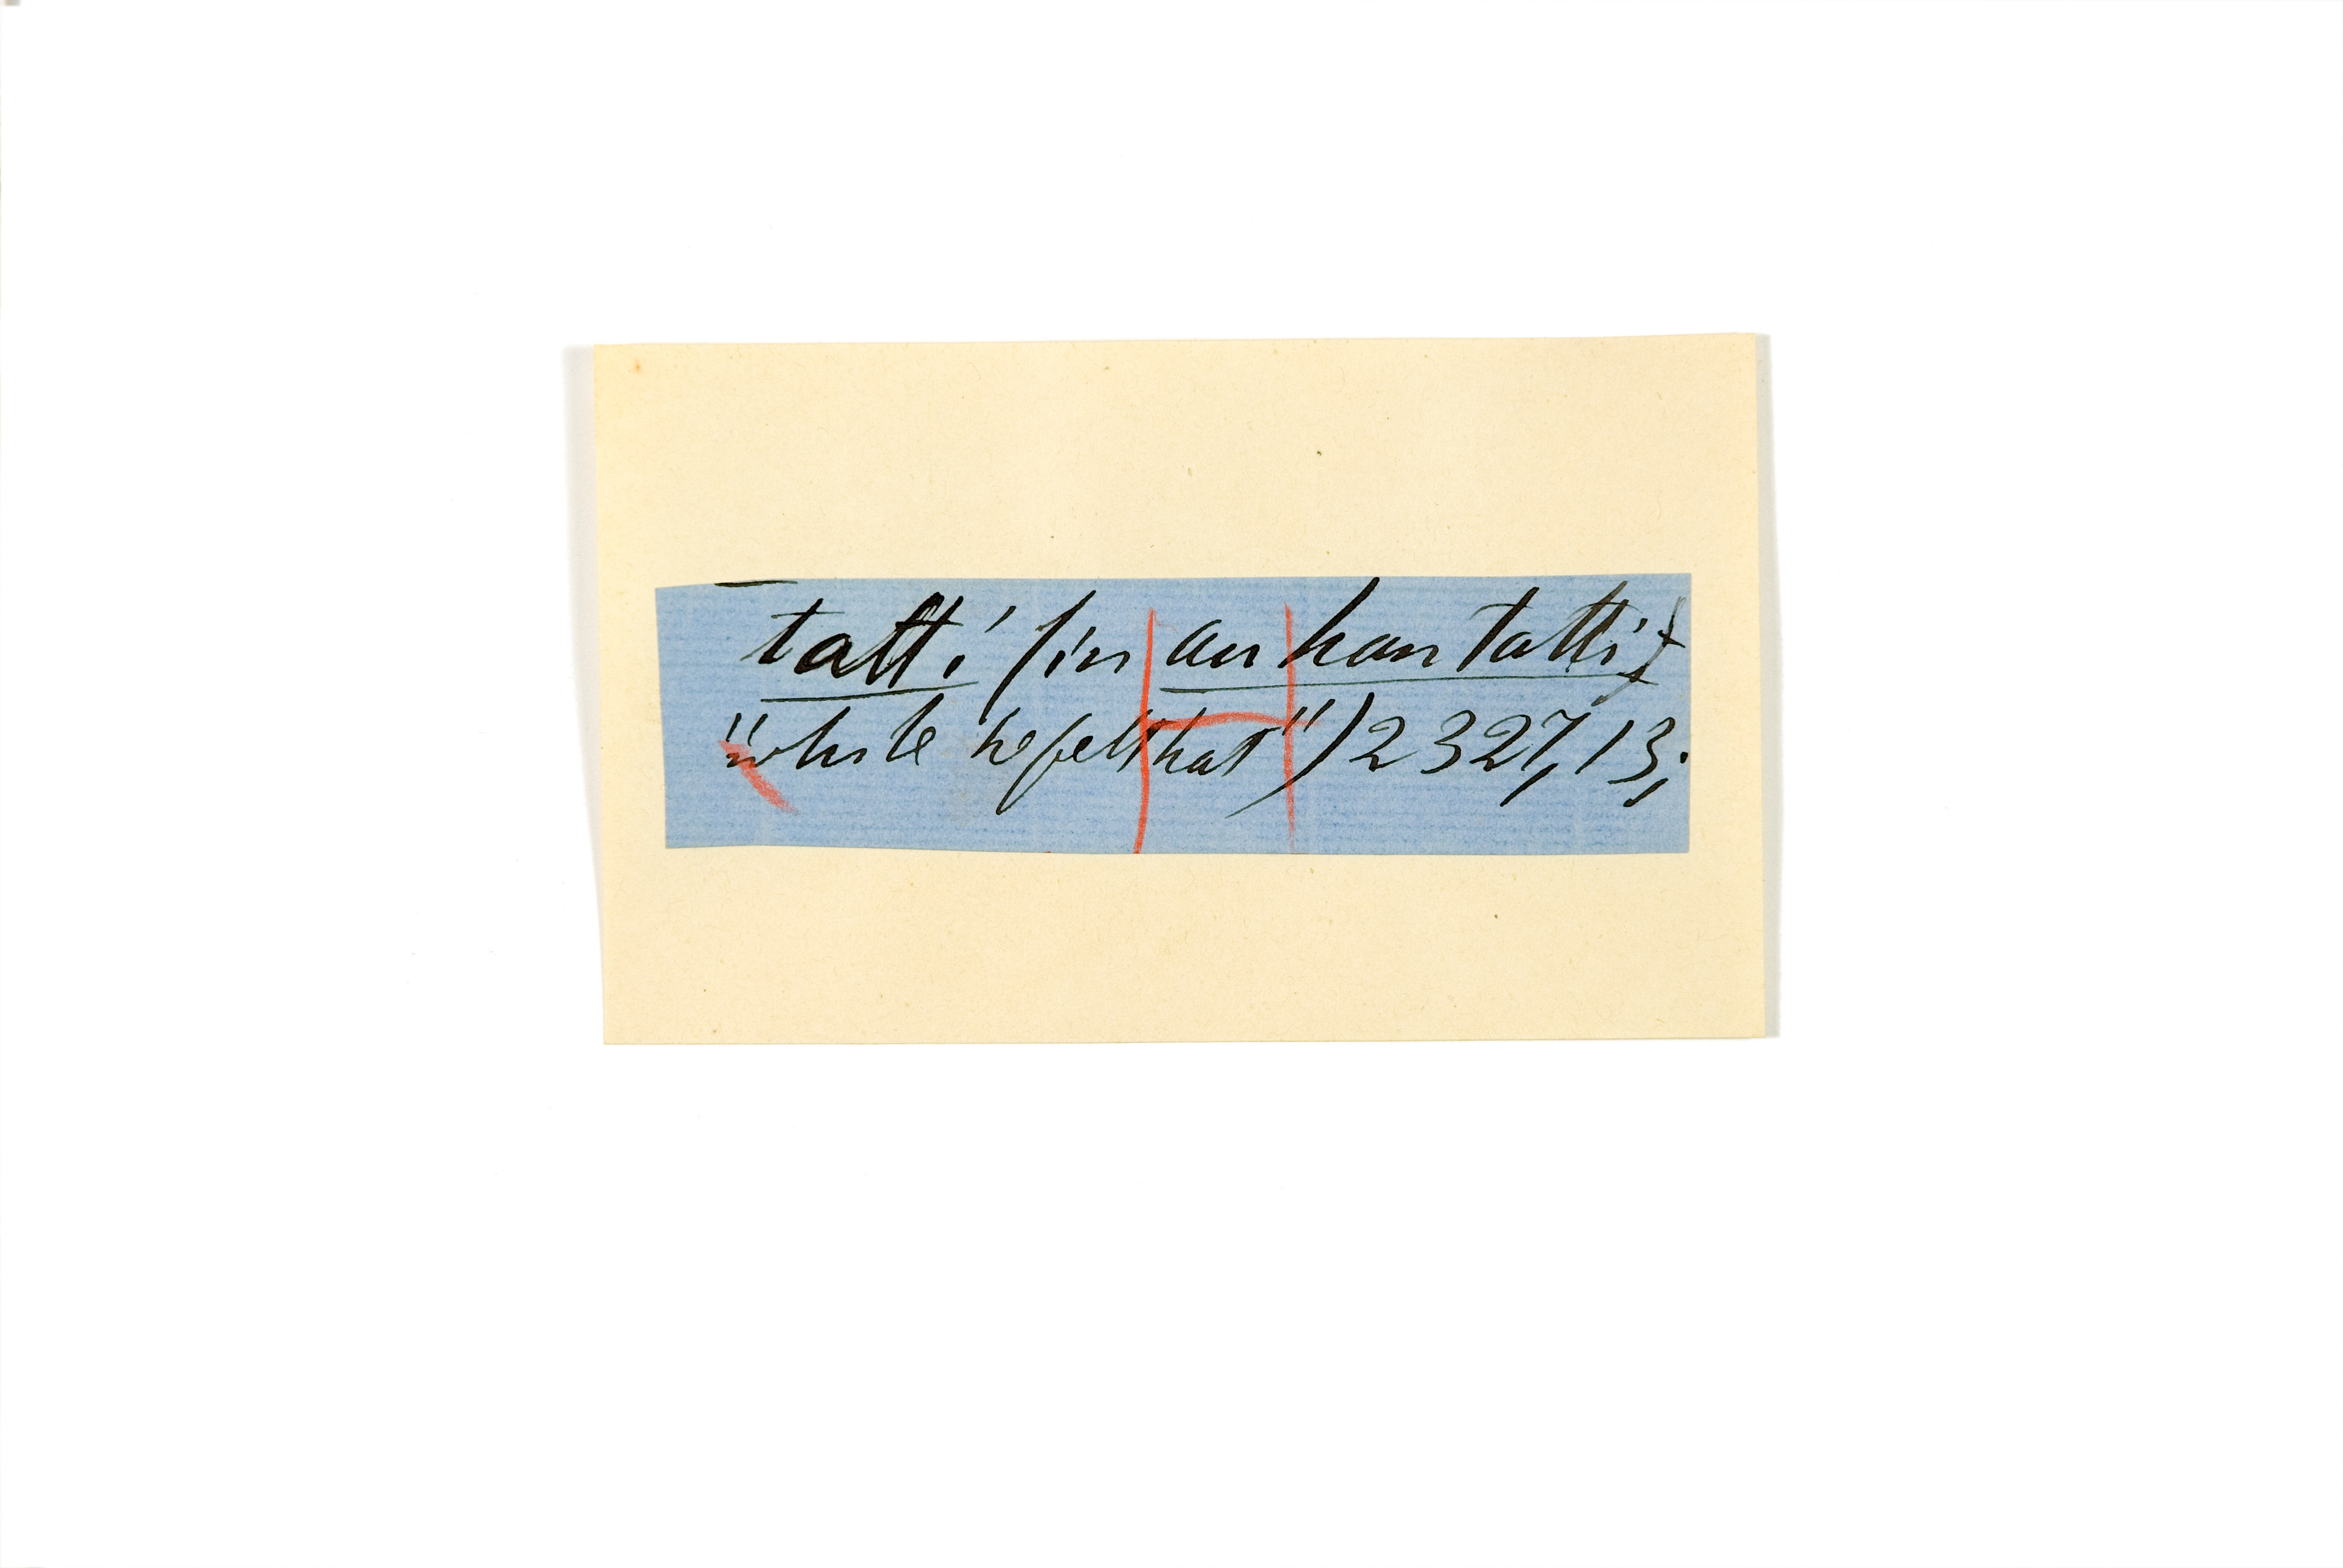 tatti (in an han tatti
"while he felt that") 2327,13;